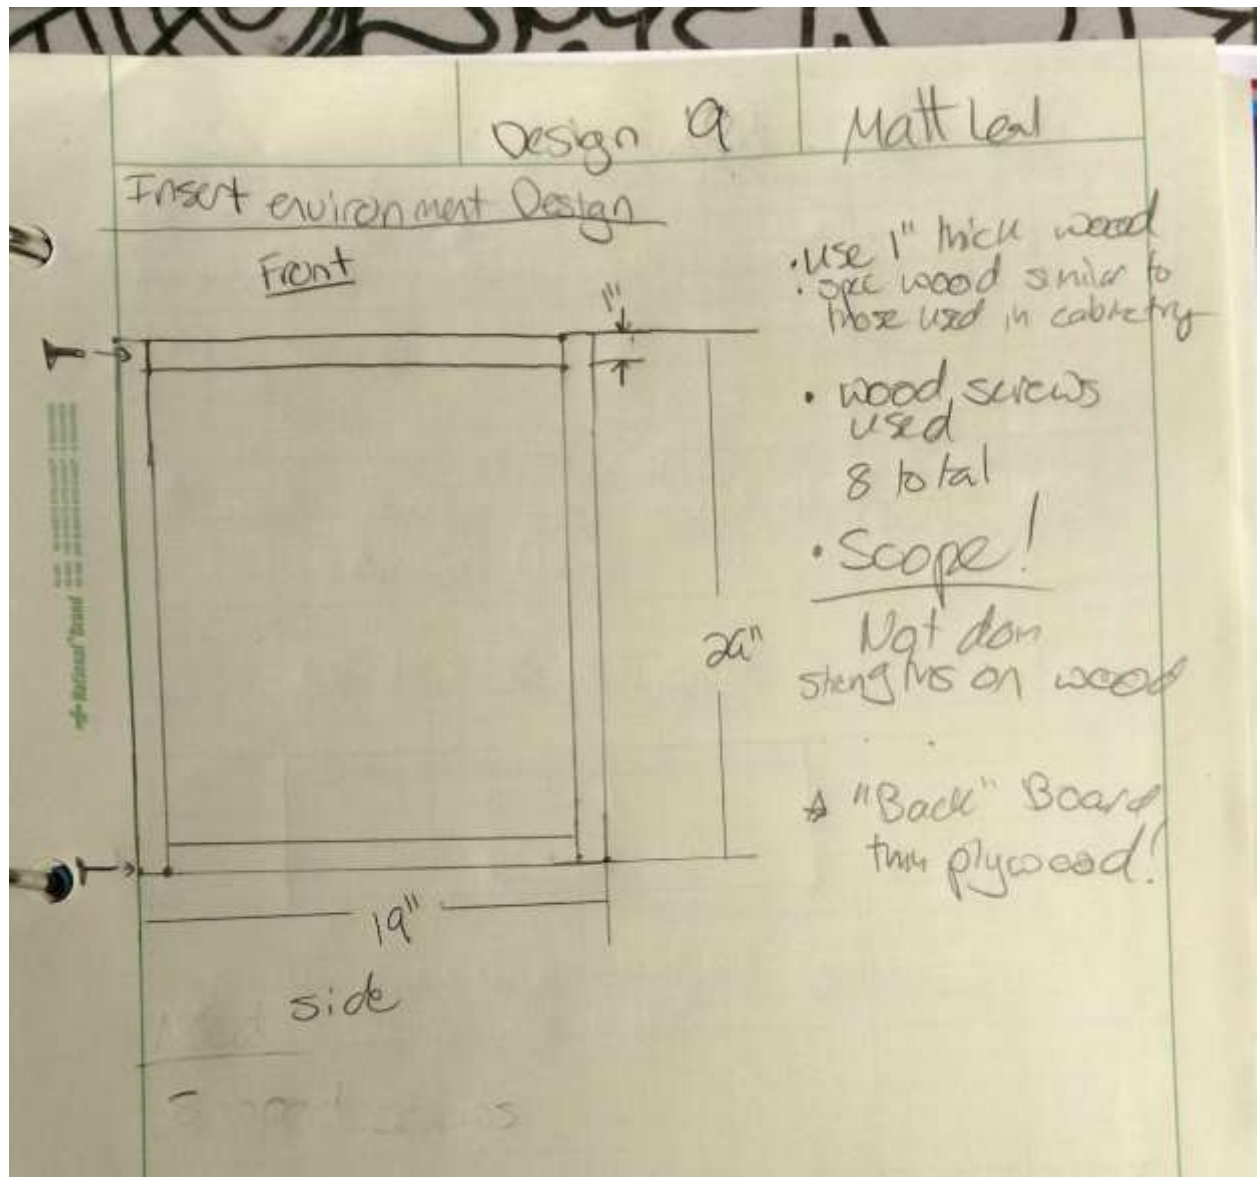 Design 9
Matt Leal
Insert environment Design
Front
1"
• use 1" thick wood
• spec wood similar to
those used in cabinetry
• wood screws
used
8 total
• Scope!
on wood
"Back" Board
plywood!
19"
side
National Brand